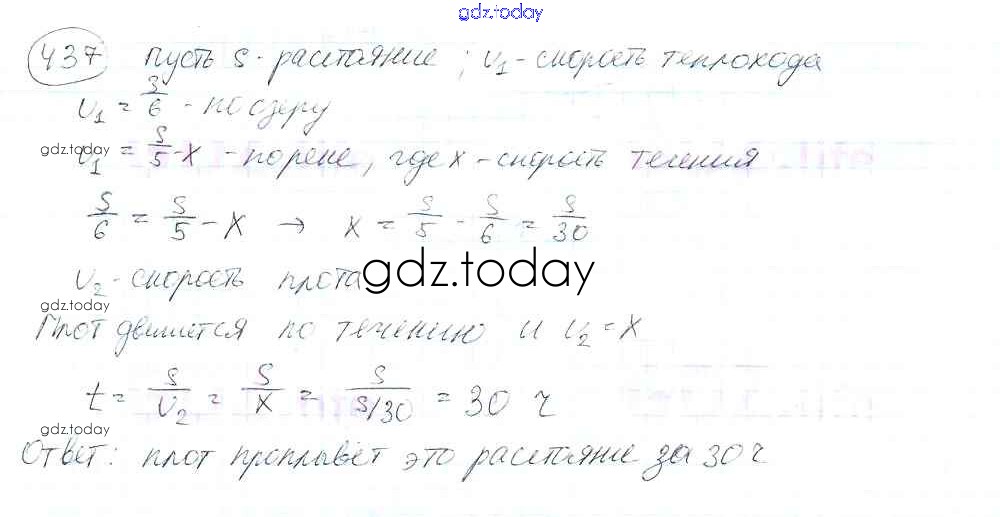 gdz.today
437 пусть S - расстояние ; υ₁ - скорость теплохода
υ₁ = S/6 - по озеру
gdz.today
υ₁ = S/5 - x - по реке, где x - скорость течения
S/6 = S/5 - x → x = S/5 - S/6 = S/30
gdz.today
υ₂ - скорость плота
gdz.today
Плот движется по течению и υ₂ = x
t = S/υ₂ = S/x = S/S/30 = 30 ч
gdz.today
Ответ: плот проплывёт это расстояние за 30 ч